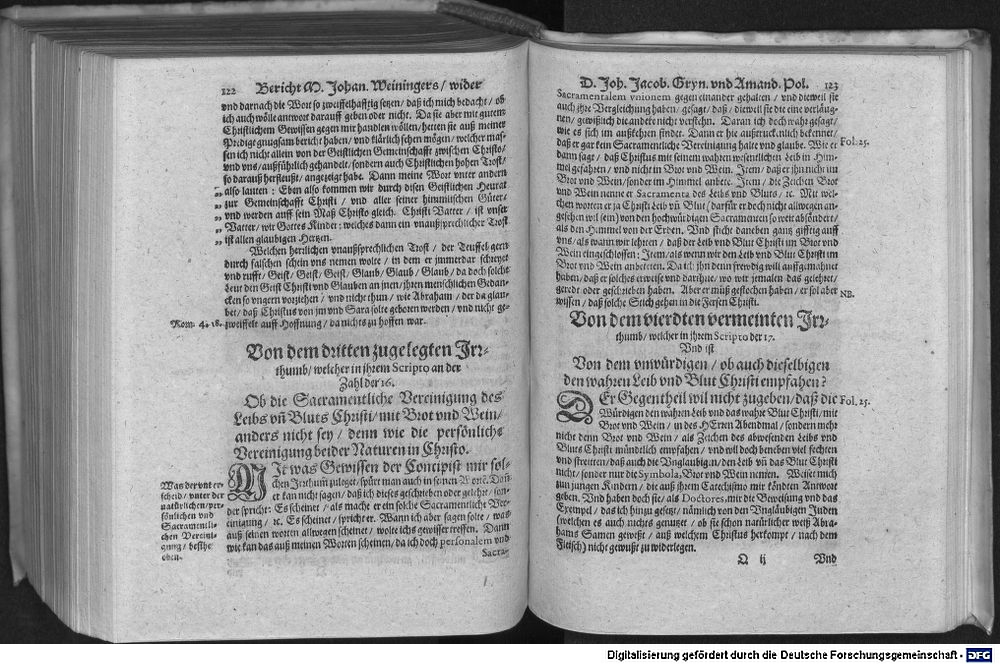 122 Bericht M. Johan. Weiningers / wider
vnd darnach die Wort so zweiffelhafftig setzen / daß ich mich bedacht / ob
ich auch wölle antwort darauff geben oder nicht. Da sie aber mit gutem
Christlichem Gewissen gegen mir handlen wöllen / hetten sie auß meiner
Predig gnugsam bericht haben / vnd klärlich sehen mögen / welcher mas-
sen ich nicht allein von der Geistlichen Gemeinschafft zwischen Christo /
vnd vns / außführlich gehandelt / sondern auch Christlichen hohen Trost /
so darauß herfleußt / angezeigt habe. Dann meine Wort vnter andern
„ also lauten : Eben also kommen wir durch disen Geistlichen Heurat
„ zur Gemeinschafft Christi / vnd aller seiner himmlischen Güter /
„ vnd werden auff sein Maß Christo gleich. Christi Vatter / ist vnser
„ Vatter / wir Gottes Kinder : welches dann ein vnaußsprechlicher Trost
„ ist allen glaubigen Hertzen.
Welchen herzlichen vnaußsprechlichen Trost / der Teuffel gern
durch falschen schein vns nemen wolte / in dem er jmmerdar schreyet
vnd rufft / Geist / Geist / Geist / Glaub / Glaub / Glaub / da doch solche
Leut den Geist Christi vnd Glauben an jnen / jhren menschlichen Gedan-
cken so vngern vorziehen / vnd nicht thun / wie Abraham / der da glau-
bet / daß Christus von jm vnd Sara solte geboren werden / vnd nicht ge-
Rom. 4. 18. zweiffelt auff Hoffnung / da nichts zu hoffen war.
Von dem dritten zugelegten Irr-
thumb / welcher in jhrem Scripto an der
Zahl der 16.
Ob die Sacramentliche Vereinigung des
Leibs vñ Bluts Christi / mit Brot vnd Wein /
anders nicht sey / denn wie die persönliche
Vereinigung beider Naturen in Christo.
MIt was Gewissen der Concipist mir sol-
chen Irrthum zuleget / spürt man auch in seinen Wortẽ. Dañ
er kan nicht sagen / daß ich dieses geschrieben oder gelehrt / son-
der spricht : Es scheinet / als mache er ein solche Sacramentliche Ver-
einigung / ꝛc. Es scheinet / spricht er. Wann ich aber sagen solte / was
auß seinen worten allwegen scheinet / wolte ichs gewisser treffen. Dann
wie kan das auß meinen Worten scheinen / da ich doch personalem vnd
Sacra-
Was der vnter-
scheid / vnter der
natürlichen / per-
sönlichen vnd
Sacramentli-
chen Vereini-
gung / besihe
oben.
D. Joh. Jacob. Gryn. vnd Amand. Pol. 123
Sacramentalem vnionem gegen einander gehalten / vnd dieweil sie
auch jhre Vergleichung haben / gesagt / daß / dieweil sie die eine verläug-
nen / gewißlich die andere nicht verstehn. Daran ich doch wahr gesagt /
wie es sich im außkehren findet. Dann er hie außtrucknlich bekennet /
daß er gar kein Sacramentliche Vereinigung halte vnd glaube. Wie er
Fol. 25.
dann sagt / daß Christus mit seinem wahren wesentlichen Leib in Him-
mel gefahren / vnd nicht in Brot vnd Wein. Item / daß er jhn nicht im
Brot vnd Wein / sonder im Himmel anbete. Item / die Zeichen Brot
vnd Wein nenne er Sacramenta des Leibs vnd Bluts / ꝛc. Mit wel-
chen worten er ja Christi Leib vñ Blut (darfür er doch nicht allwegen an-
gesehen wil sein) von den hochwürdigen Sacramenten so weit absöndert /
als den Himmel von der Erden. Vnd sticht daneben gantz gifftig auff
vns / als wann wir lehrten / daß der Leib vnd Blut Christi im Brot vnd
Wein eingeschlossen : Item / als wenn wir den Leib vnd Blut Christi im
Brot vnd Wein anbeteten. Da ich jhn denn frewdig will auffgemahnet
haben / daß er solches erweise vnd darthue / wo wir jemalen das gelehret /
geredt oder geschrieben haben. Aber er muß gestochen haben / er sol aber
NB.
wissen / daß solche Stich gehen in die Fersen Christi.
Von dem vierdten vermeinten Irr-
thumb / welcher in jhrem Scripto der 17.
Vnd ist
Von dem vnwürdigen / ob auch dieselbigen
den wahren Leib vnd Blut Christi empfahen?
DEr Gegentheil wil nicht zugeben / daß die
Fol. 25.
Würdigen den wahren Leib vnd das wahre Blut Christi / mit
Brot vnd Wein / in des HErren Abendmal / sondern mehr
nicht denn Brot vnd Wein / als Zeichen des abwesenden Leibs vnd
Bluts Christi mündlich empfahen / vnd wil doch beneben viel fechten
vnd streitten / daß auch die Vnglaubigẽ / den Leib vñ das Blut Christi
nicht / sonder nur die Symbola, Brot vnd Wein nemen. Weiset mich
zun jungen Kindern / die auß jhrem Catechismo mir köndten Antwort
geben. Vnd haben doch sie / als Doctores, mir die Beweisung vnd das
Exempel / das ich hinzu gesetzt / nämlich von den Vngläubigen Juden
(welchen es auch nichts genutzet / ob sie schon natürlicher weiß Abra-
hams Samen geweßt / auß welchem Christus herkompt / nach dem
Fleisch) nicht gewußt zu widerlegen.
Q ij Vnd
Digitalisierung gefördert durch die Deutsche Forschungsgemeinschaft - DFG